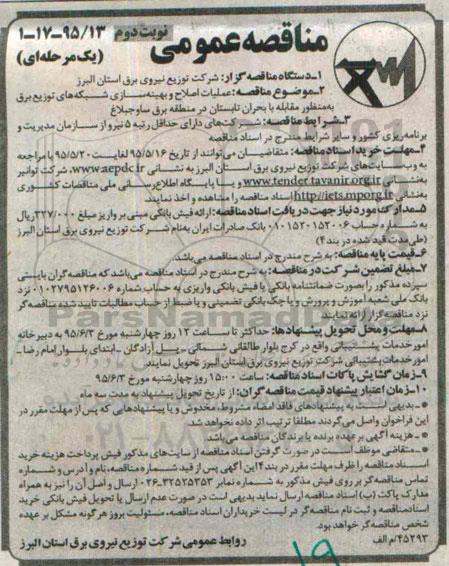 مناقصه عمومی نوبت دوم ۹۵/۱۳-۱۷-۱
(یک مرحله‌ای)
۱-دستگاه مناقصه گزار: شرکت توزیع نیروی برق استان البرز
۲-موضوع مناقصه: عملیات اصلاح و بهینه‌سازی شبکه‌های توزیع برق
به‌منظور مقابله با بحران تابستان در منطقه برق ساوجبلاغ
۳-شرایط مناقصه: شرکت‌های دارای حداقل رتبه ۵ نیرو از سازمان مدیریت و
برنامه‌ریزی کشور و سایر شرایط مندرج در اسناد مناقصه
۴-مهلت خرید اسناد مناقصه: متقاضیان می‌توانند از تاریخ ۹۵/۵/۱۶ لغایت ۹۵/۵/۲۰ با مراجعه
به وب‌سایت‌های شرکت توزیع نیروی برق استان البرز به نشانی www.aepdc.ir، شرکت توانیر
به‌نشانی www.tender.tavanir.org.ir و یا پایگاه اطلاع‌رسانی ملی مناقصات کشوری
به‌نشانی http://iets.mporg.ir اسناد مناقصه را مشاهده و اخذ نمایند.
۵-مدارک مورد نیاز جهت دریافت اسناد مناقصه: ارائه فیش بانکی مبنی بر واریز مبلغ ۳۲۷/۰۰۰ ریال
به شماره حساب ۰۱۰۱۵۲۰۱۵۲۰۰۶ بانک صادرات ایران به‌نام شرکت توزیع نیروی برق استان البرز
(طی مدت قید شده در بند ۴)
۶-قیمت پایه مناقصه: به شرح مندرج در اسناد مناقصه می‌باشد.
۷-مبلغ تضمین شرکت در مناقصه: به شرح مندرج در اسناد مناقصه می‌باشد که مناقصه‌گران بایستی
سپرده مذکور را بصورت ضمانتنامه بانکی یا فیش بانکی واریزی به حساب شماره ۰۱۰۲۷۹۵۱۲۶۰۰۶ نزد
بانک ملی شعبه آموزش و پرورش و یا چک بانکی تضمینی و یا ضبط از حساب مطالبات تایید شده مناقصه‌گر
نزد مناقصه گزار ارائه نمایند.
۸-مهلت و محل تحویل پیشنهادها: حداکثر تا ساعت ۱۲ روز چهارشنبه مورخ ۹۵/۶/۳ به دبیرخانه
امور خدمات پشتیبانی واقع در کرج بلوار طالقانی شمالی-پل آزادگان-ابتدای بلوار امام رضا-
امور خدمات پشتیبانی شرکت توزیع نیروی برق استان البرز تحویل نمایند.
۹-زمان گشایش پاکات اسناد مناقصه: ساعت ۱۵:۰۰ روز چهارشنبه مورخ ۹۵/۶/۳
۱۰-زمان اعتبار پیشنهاد قیمت مناقصه گران: از تاریخ تحویل پیشنهاد به مدت سه ماه
*-بدیهی است به پیشنهادهای فاقد امضاء، مشروط، مخدوش و یا پیشنهادهایی که پس از مهلت مقرر در
این فراخوان واصل می‌گردند مطلقا ترتیب اثر داده نخواهد شد.
*-هزینه آگهی بر عهده برنده یا برندگان مناقصه می‌باشد.
*-متقاضی موظف است در صورت گرفتن اسناد مناقصه از سایت‌های مذکور فیش پرداخت هزینه خرید
اسناد مناقصه را ظرف مهلت مقرر در بند ۴ این آگهی پس از قید شماره مناقصه، نام و آدرس و شماره
تماس مناقصه‌گر بر روی فیش مذکور به شماره نمابر ۳۲۵۲۵۳۵۳-۰۲۶ ارسال و اصل آن را نیز به همراه
مدارک پاکت (ب) اسناد مناقصه ارسال نماید بدیهی است در صورت عدم ارسال یا تحویل فیش بانکی خرید
اسناد مناقصه و ثبت نام مناقصه‌گر در لیست خریداران اسناد مناقصه، مسئولیت بروز هرگونه مشکل بر عهده
شخص مناقصه‌گر خواهد بود.
۴۵۲۹۳/م الف روابط عمومی شرکت توزیع نیروی برق استان البرز
۱۹
ParsNamadData